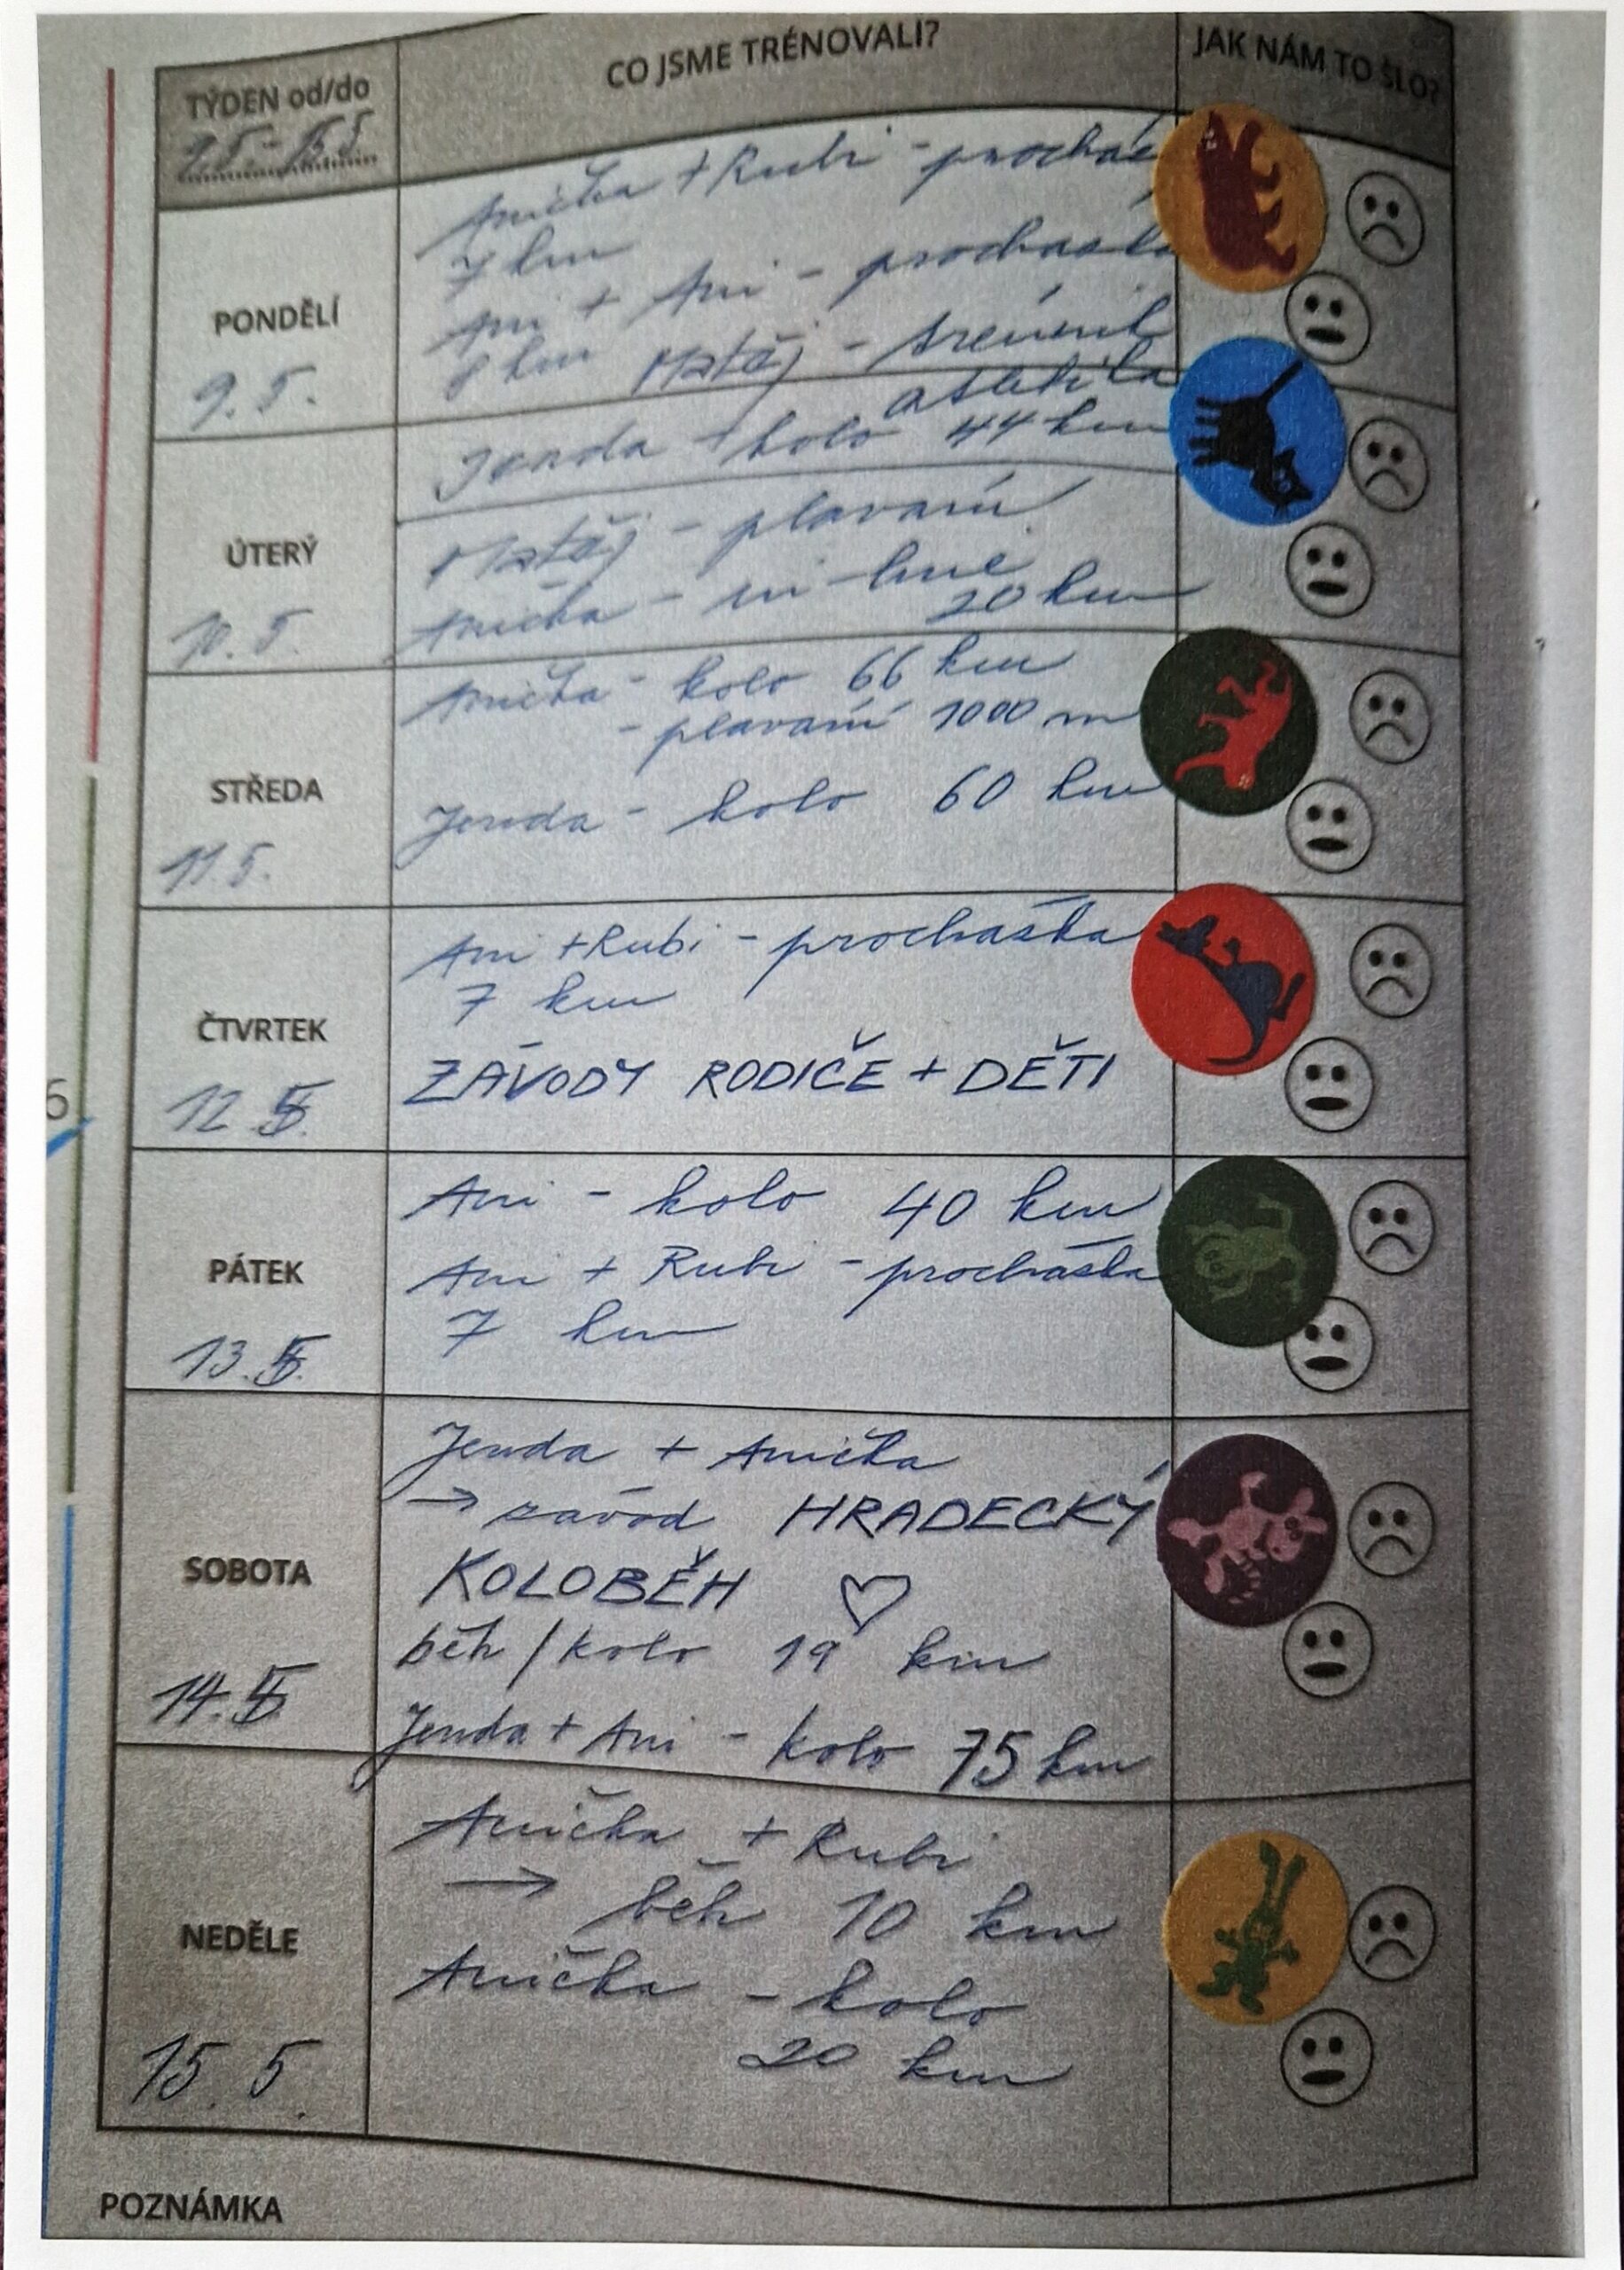 TÝDEN od/do
CO JSME TRÉNOVALI?
JAK NÁM TO ŠLO?
9.5. - 15.5.
PONDĚLÍ
9. 5.
Anička + Rubi - prochá
7 km
Ani + Ani - procházka
8 km Matěj - trénink
atletika
Jenda - kolo 44 km
ÚTERÝ
10. 5.
Matěj - plavání
Anička - in-line
20 km
STŘEDA
11.5.
Anička - kolo 66 km
- plavání 1000 m
Jenda - kolo 60 km
ČTVRTEK
12 5.
Ani + Rubi - procházka
7 km
ZÁVODY RODIČE + DĚTI
PÁTEK
13. 5.
Ani - kolo 40 km
Ani + Rubi - procházka
7 km
SOBOTA
14. 5
Jenda + Anička
→ závod HRADECKÝ
KOLOBĚH ♡
běh / kolo 19 km
Jenda + Ani - kolo 75 km
NEDĚLE
15. 5.
Anička + Rubi
→ běh 10 km
Anička - kolo
20 km
POZNÁMKA
6